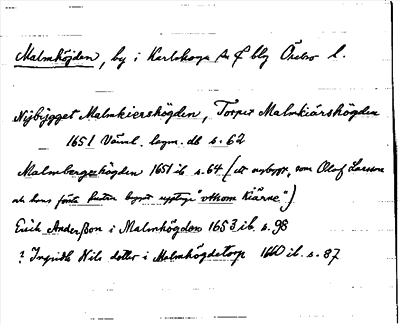 Malmhöjden, by i Karlskoga sn o blg Örebro l.
Nybygget Malmkiershögden, Torpet Malmkiärshögden
1651 Värml. lagm. db s. 62
Malmbergzhögden 1651 ib s. 64 (ett nybygge, som Olof Larsson
och hans första hustru bygdt upptage "uthom Kiärne")
Erich Anderßon i Malmhögden 1653 ib. s. 98
? Ingridh Nils dotter i Malmhögdetorp 1660 ib. s. 87